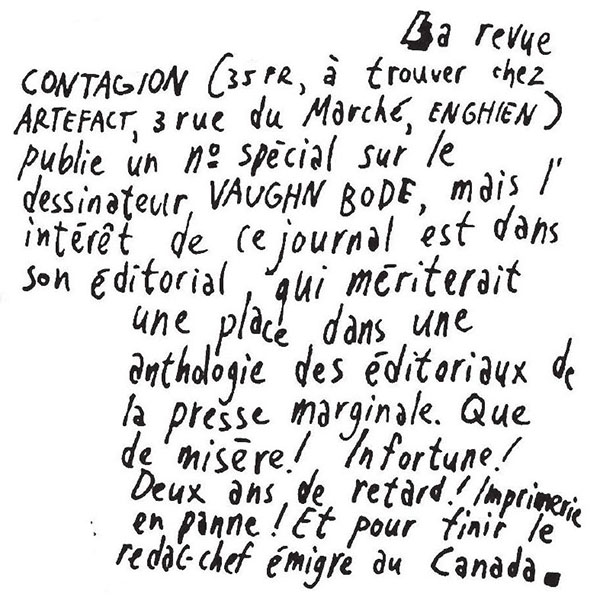 La revue
CONTAGION (35 FR, à trouver chez
ARTEFACT, 3 rue du Marché, ENGHIEN)
publie un nº spécial sur le
dessinateur, VAUGHN BODE, mais l'
intérêt de ce journal est dans
son éditorial, qui mériterait
une place dans une
anthologie des éditoriaux de
la presse marginale. Que
de misēre! Infortune!
Deux ans de retard! Imprimerie
en panne! Et pour finir le
redac-chef émigre au Canada.